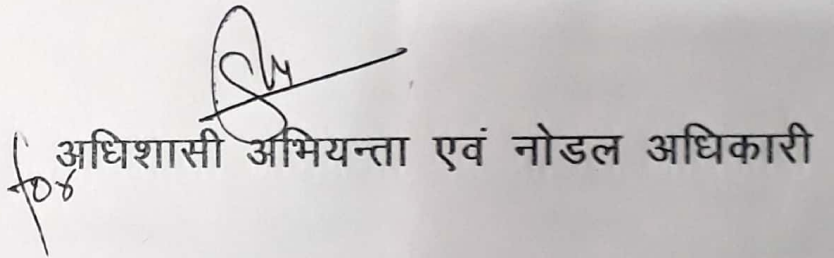 for अधिशासी अभियन्ता एवं नोडल अधिकारी